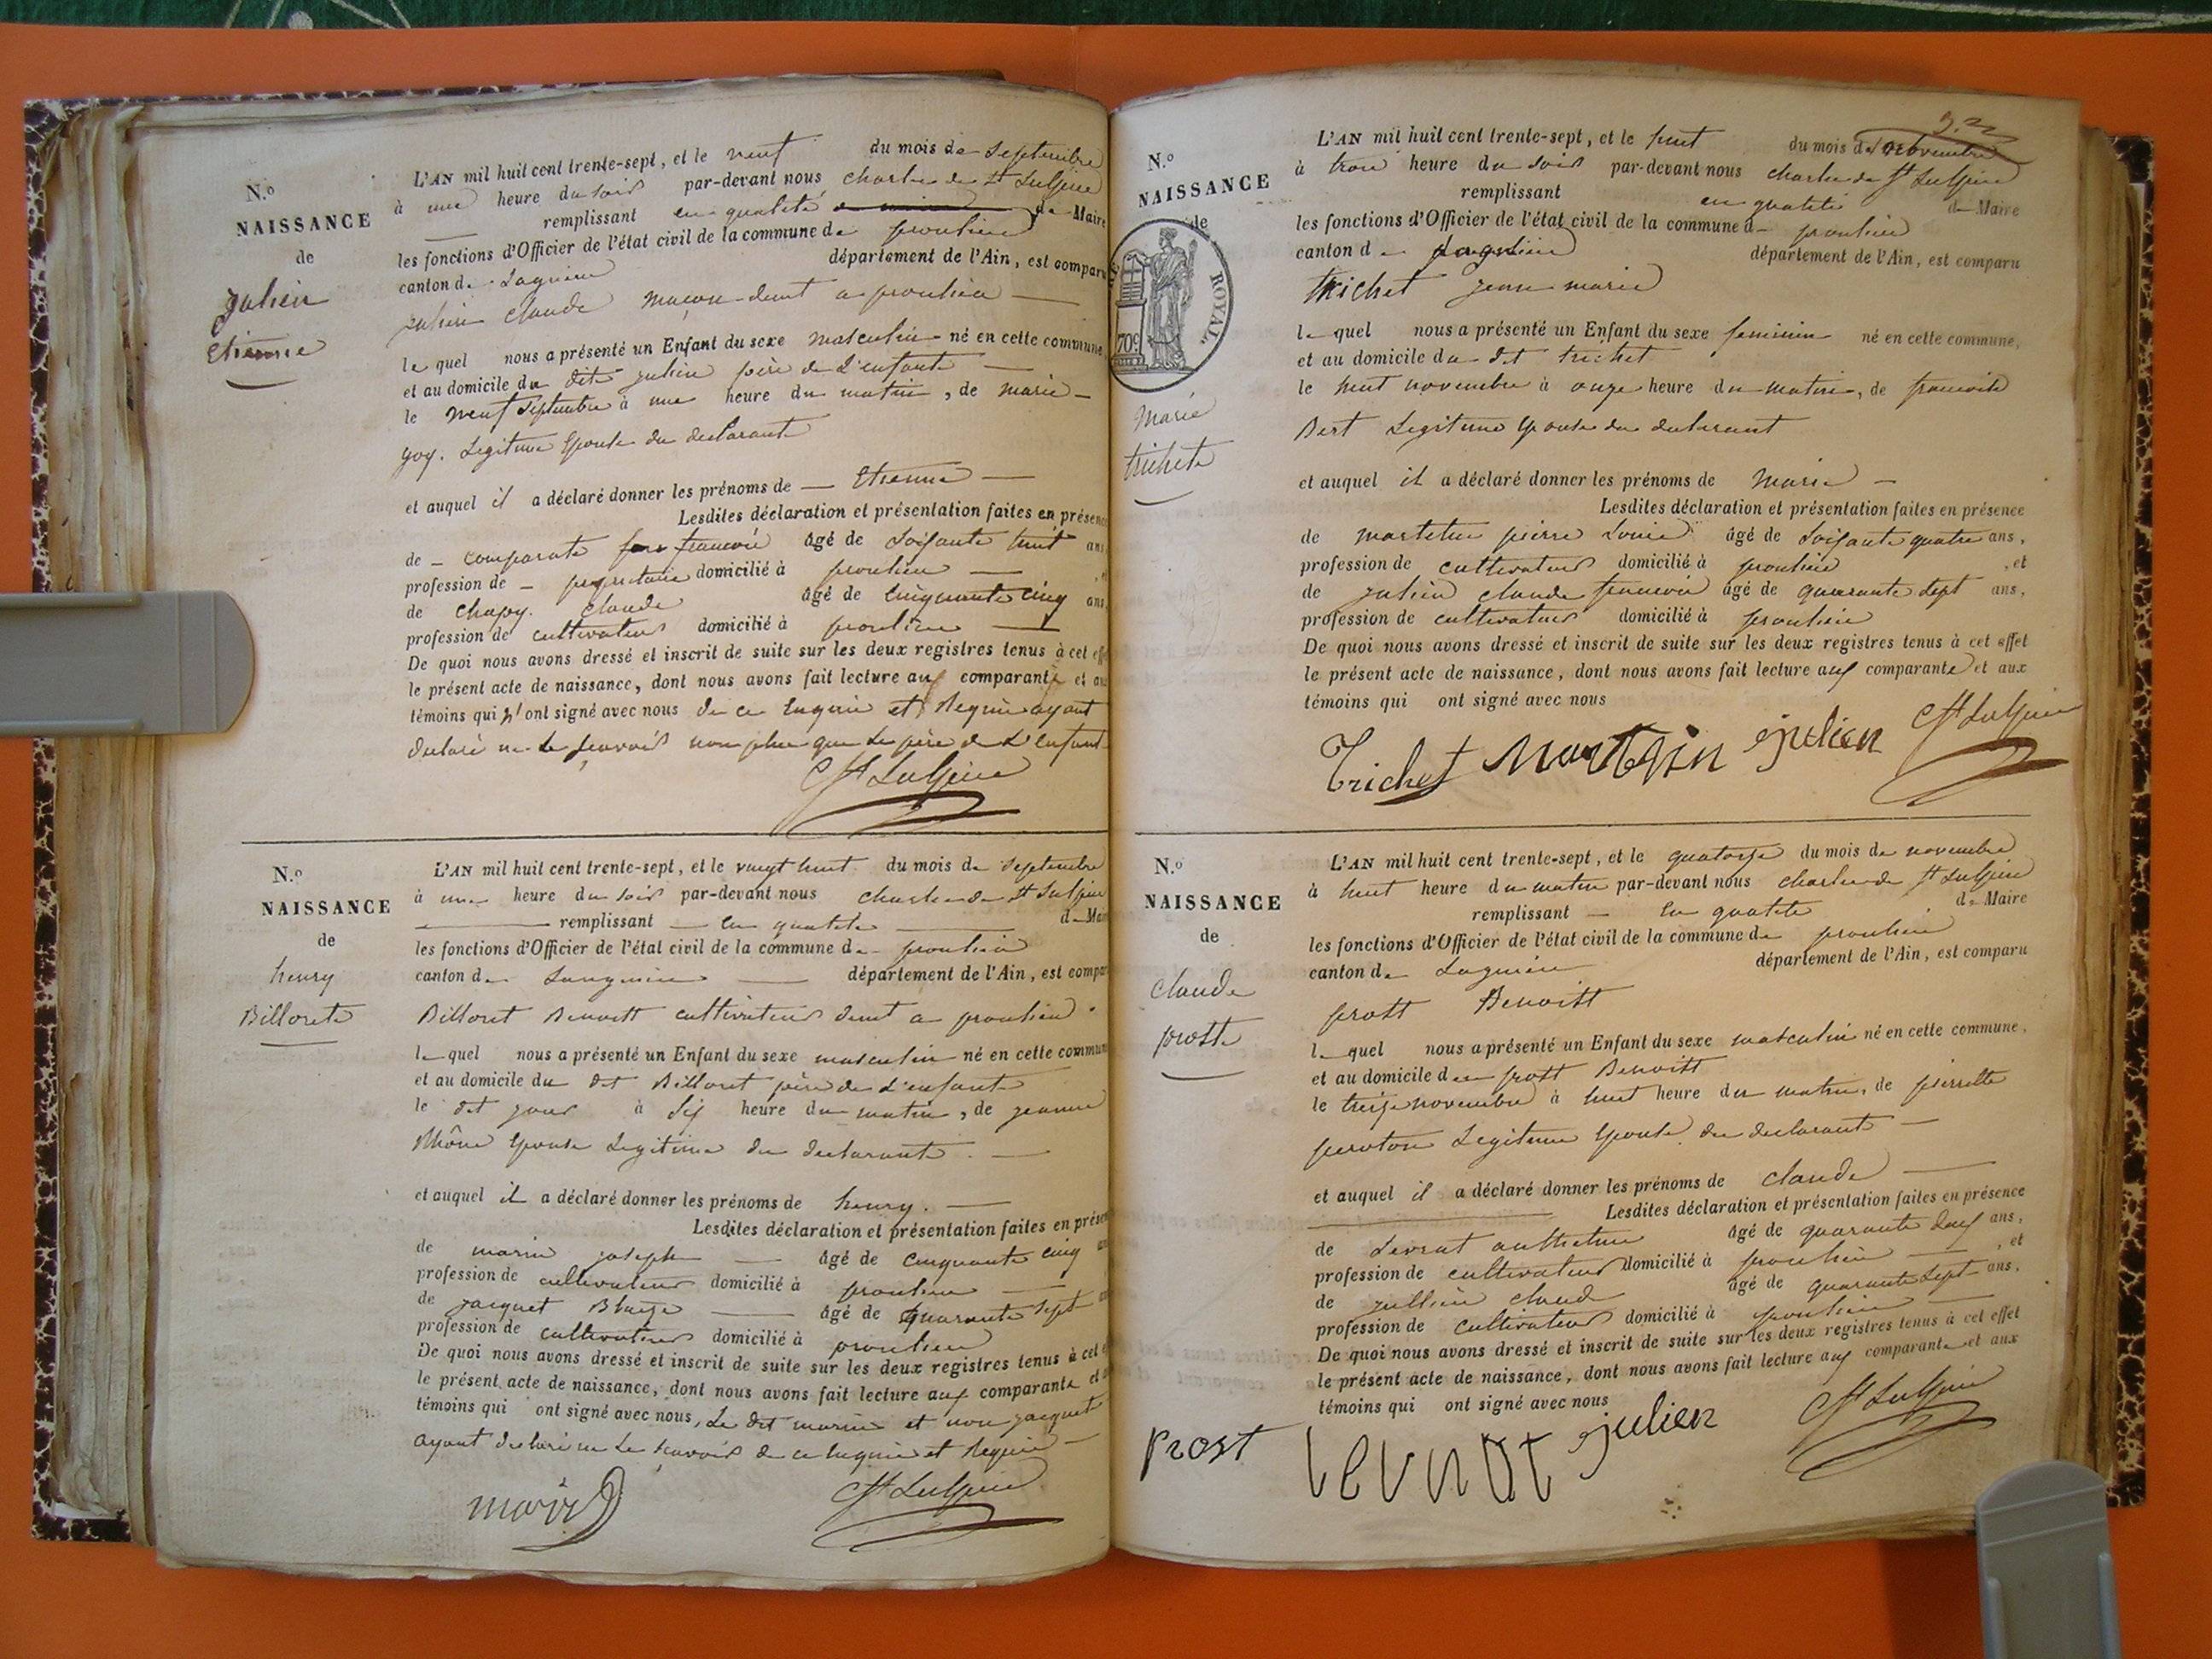 N.º
NAISSANCE
de
Julien
Etienne
L'AN mil huit cent trente-sept, et le neuf du mois de Septembre
à une heure du soir par-devant nous charles de St Sulpice
remplissant en qualité de Maire
les fonctions d'Officier de l'état civil de la commune de proulieu
canton de Lagnieu département de l'Ain, est comparu
julien claude maçon demt a proulieu
le quel nous a présenté un Enfant du sexe masculin né en cette commune
et au domicile du dit julien père de L'enfant
le neuf Septembre à une heure du matin, de marie
goy. Legitime Epouse du declarant
et auquel il a déclaré donner les prénoms de Etienne
Lesdites déclaration et présentation faites en présence
de comparate francois âgé de Soixante huit ans
profession de propriétaire domicilié à proulieu
de Chapy. Claude âgé de Cinquante cinq ans
profession de cultivateur domicilié à proulieu
De quoi nous avons dressé et inscrit de suite sur les deux registres tenus à cet effet
le présent acte de naissance, dont nous avons fait lecture aux comparants et aux
témoins qui n'ont signé avec nous de ce Enquis et Requis ayant
declaré ne le scavoir non plus que Le père de L'enfant
St Sulpice
N.º
NAISSANCE
de
henry
Billoret
L'AN mil huit cent trente-sept, et le vingt huit du mois de Septembre
à une heure du soir par-devant nous charles de St Sulpice
remplissant en qualité de Maire
les fonctions d'Officier de l'état civil de la commune de proulieu
canton de Langnieu département de l'Ain, est comparu
Billoret Benoitt cultivateur demt a proulieu
le quel nous a présenté un Enfant du sexe masculin né en cette commune
et au domicile du dit Billoret père de L'enfant
le dit jour à Six heure du matin, de jeanne
Rhône Epouse Legitime du declarant
et auquel il a déclaré donner les prénoms de henry.
Lesdites déclaration et présentation faites en présence
de marin joseph âgé de cinquante cinq
profession de cultivateur domicilié à proulieu
de jacquet Blaize âgé de quarante sept
profession de cultivateur domicilié à proulieu
De quoi nous avons dressé et inscrit de suite sur les deux registres tenus à cet
le présent acte de naissance, dont nous avons fait lecture aux comparants et
témoins qui ont signé avec nous, Le dit marin et non jacquet
ayant declaré ne Le scavoir de ce Enquis et Requis
marin
St Sulpice
N.º
NAISSANCE
de
ROYAL
70 c
Marie
trichet
L'AN mil huit cent trente-sept, et le huit du mois de novembre
à trois heure du soir par-devant nous charles de St Sulpice
remplissant en qualité de Maire
les fonctions d'Officier de l'état civil de la commune de proulieu
canton de Lagnieu département de l'Ain, est comparu
trichet jean marie
le quel nous a présenté un Enfant du sexe feminin né en cette commune,
et au domicile du dit trichet
le huit novembre à onze heure du matin, de francoise
Bert Legitime Epouse du declarant
et auquel il a déclaré donner les prénoms de Marie
Lesdites déclaration et présentation faites en présence
de pierre Louis âgé de Soixante quatre ans,
profession de cultivateur domicilié à proulieu, et
de julien claude francois âgé de quarante Sept ans,
profession de cultivateur domicilié à proulieu
De quoi nous avons dressé et inscrit de suite sur les deux registres tenus à cet effet
le présent acte de naissance, dont nous avons fait lecture aux comparants et aux
témoins qui ont signé avec nous
Trichet julien St Sulpice
N.º
NAISSANCE
de
claude
prost
L'AN mil huit cent trente-sept, et le quatorze du mois de novembre
à huit heure du matin par-devant nous charles de St Sulpice
remplissant en qualité de Maire
les fonctions d'Officier de l'état civil de la commune de proulieu
canton de Lagnieu département de l'Ain, est comparu
prost Benoitt
le quel nous a présenté un Enfant du sexe masculin né en cette commune,
et au domicile du prost Benoitt
le treize novembre à huit heure du matin, de pierrette
peroton Legitime Epouse du declarant
et auquel il a déclaré donner les prénoms de claude
Lesdites déclaration et présentation faites en présence
de Levrat anthelme âgé de quarante deux ans,
profession de cultivateur domicilié à proulieu, et
de jullien claud âgé de quarante Sept ans,
profession de cultivateur domicilié à proulieu
De quoi nous avons dressé et inscrit de suite sur les deux registres tenus à cet effet
le présent acte de naissance, dont nous avons fait lecture aux comparants et aux
témoins qui ont signé avec nous
prost Levrat julien St Sulpice